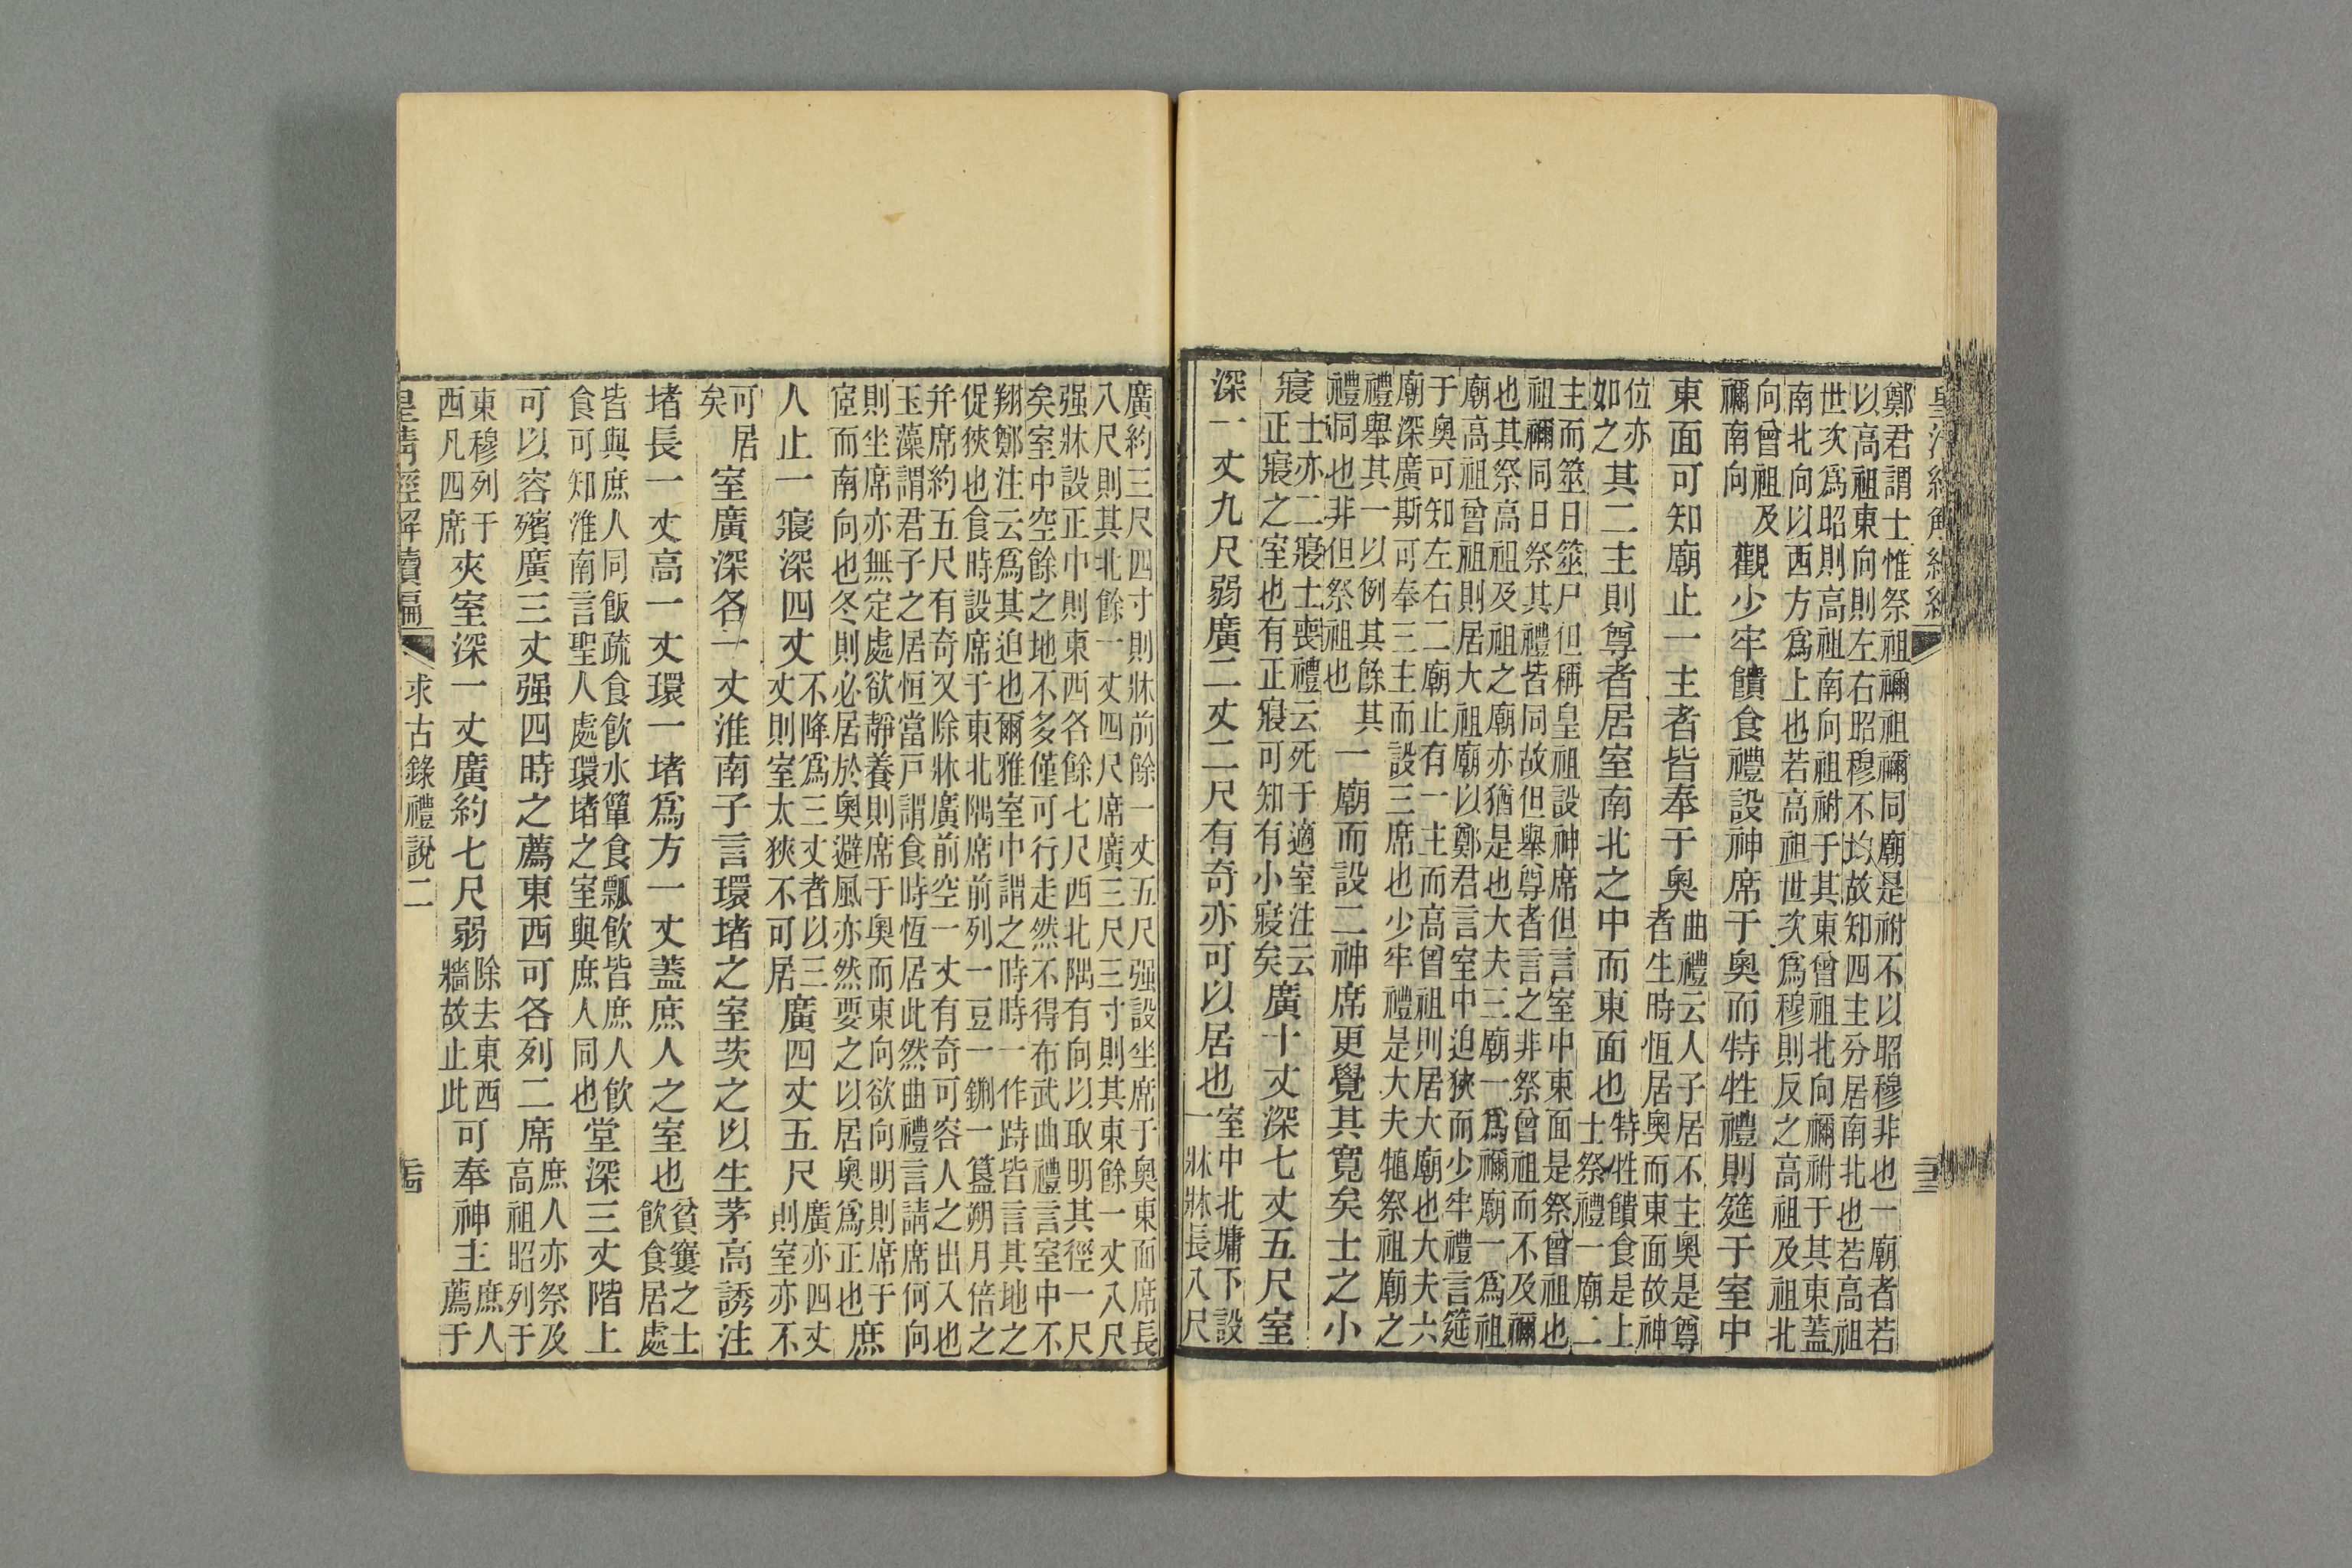 鄭君謂士惟祭祖禰祖禰同廟是祔不以昭穆非也一廟者若
以高祖東向則左右昭穆不均故知四主分居南北也若高祖
世次爲昭則高祖南向祖祔于其東曾祖北向禰祔于其東蓋
南北向以西方爲上也若高祖世次爲穆則反之高祖及祖北
向曾祖及禰南向觀少牢饋食禮設神席于奧而特牲禮則筵于室中
東面可知廟止一主者皆奉于奧曲禮云人子居不主奧是尊者生時恆居奧而東面故神
位亦如之其二主則尊者居室南北之中而東面也特牲饋食是上士祭禮一廟二
主而筮日筮尸但稱皇祖設神席但言室中東面是祭曾祖也
祖禰同日祭其禮皆同故但舉尊者言之非祭曾祖而不及禰
也其祭高祖及祖之廟亦猶是也大夫三廟一爲禰廟一爲祖
廟高祖曾祖則居大祖廟以鄭君言室中迫狹而少牢禮言筵
于奧可知左右二廟止有一主而高曾祖則居大廟也大夫六
廟深廣斯可奉三主而設三席也少牢禮是大夫犆祭祖廟之
禮舉其一以例其餘其禮同也非但祭祖也一廟而設二神席更覺其寬矣士之小
寢士亦二寢士喪禮云死于適室注云正寢之室也有正寢可知有小寢矣廣十丈深七丈五尺室
深一丈九尺弱廣二丈二尺有奇亦可以居也室中北墉下設一牀牀長八尺
廣約三尺四寸則牀前餘一丈五尺强設坐席于奧東面席長
八尺則其北餘一丈四尺席廣三尺三寸則其東餘一丈八尺
强牀設正中則東西各餘七尺西北隅有向以取明其徑一尺
矣室中空餘之地不多僅可行走然不得布武曲禮言室中不
翔鄭注云爲其迫也爾雅室中謂之時時一作跱皆言其地之
促狹也食時設席于東北隅席前列一豆一鉶一簋朔月倍之
幷席約五尺有奇又除牀廣前空一丈有奇可容人之出入也
玉藻謂君子之居恒當戸謂食時恆居此然曲禮言請席何向
則坐席亦無定處欲靜養則席于奧而東向欲向明則席于
宧而南向也冬則必居於奧避風亦然要之以居奧爲正也庶
人止一寢深四丈不降爲三丈者以三丈則室太狹不可居廣四丈五尺廣亦四丈則室亦不
可居矣室廣深各一丈淮南子言環堵之室茨之以生茅高誘注
堵長一丈高一丈環一堵爲方一丈蓋庶人之室也貧窶之士飲食居處
皆與庶人同飯疏食飲水簞食瓢飲皆庶人飲食可知淮南言聖人處環堵之室與庶人同也堂深三丈階上
可以容殯廣三丈强四時之薦東西可各列二席庶人亦祭及高祖昭列于
東穆列于西凡四席夾室深一丈廣約七尺弱除去東西牆故止此可奉神主庶人薦于
皇清經解續編
求古錄禮說二